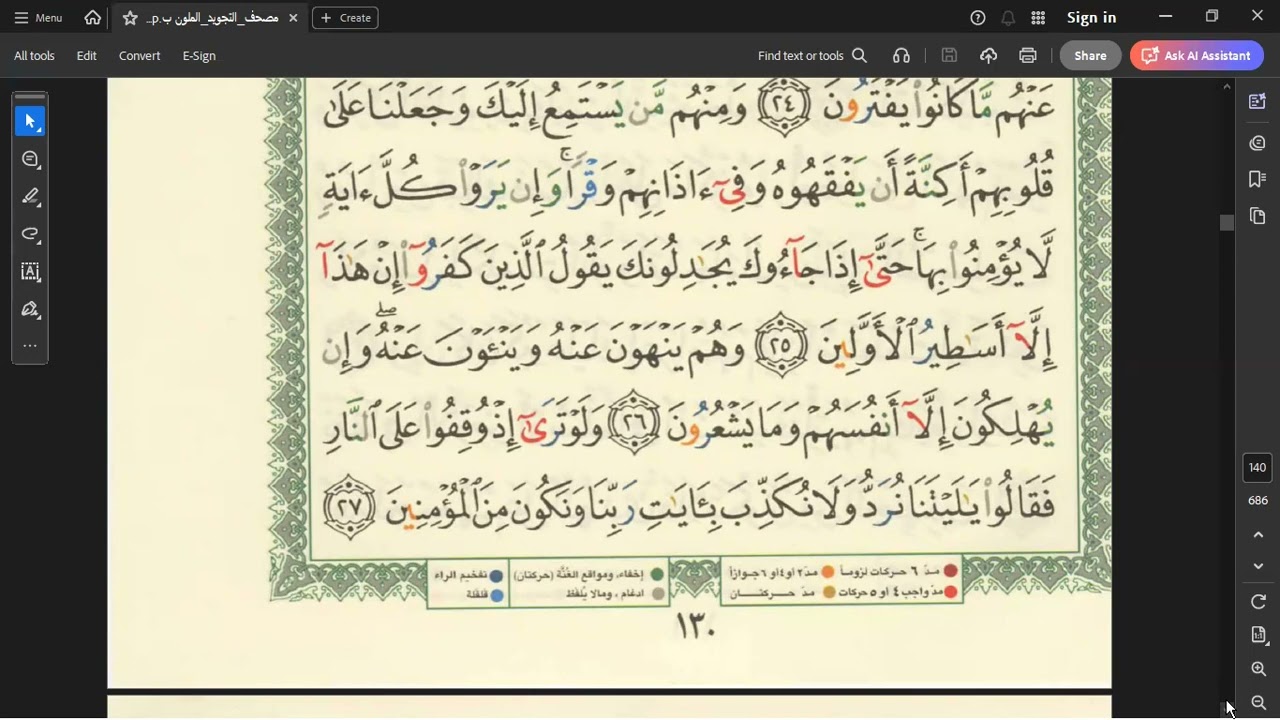 Menu
مصحف_التجويد_الملون ب.p...
Create
Sign in
All tools Edit Convert E-Sign
Find text or tools
Share
Ask AI Assistant
عَنْهُم مَّا كَانُوا۟ يَفْتَرُونَ ٢٤ وَمِنْهُم مَّن يَسْتَمِعُ إِلَيْكَ وَجَعَلْنَا عَلَىٰ
قُلُوبِهِمْ أَكِنَّةً أَن يَفْقَهُوهُ وَفِىٓ ءَاذَانِهِمْ وَقْرًا ۚ وَإِن يَرَوْا۟ كُلَّ ءَايَةٍ
لَّا يُؤْمِنُوا۟ بِهَا ۚ حَتَّىٰٓ إِذَا جَآءُوكَ يُجَٰدِلُونَكَ يَقُولُ ٱلَّذِينَ كَفَرُوٓا۟ إِنْ هَٰذَآ
إِلَّآ أَسَٰطِيرُ ٱلْأَوَّلِينَ ٢٥ وَهُمْ يَنْهَوْنَ عَنْهُ وَيَنْـَٔوْنَ عَنْهُ ۖ وَإِن
يُهْلِكُونَ إِلَّآ أَنفُسَهُمْ وَمَا يَشْعُرُونَ ٢٦ وَلَوْ تَرَىٰٓ إِذْ وُقِفُوا۟ عَلَى ٱلنَّارِ
فَقَالُوا۟ يَٰلَيْتَنَا نُرَدُّ وَلَا نُكَذِّبَ بِـَٔايَٰتِ رَبِّنَا وَنَكُونَ مِنَ ٱلْمُؤْمِنِينَ ٢٧
مدّ ٦ حركات لزوماً مدّ٢ او٤ او ٦ جوازاً
مدّ واجب ٤ او ٥ حركات مدّ حركتان
إخفاء، ومواقع الغُنَّة (حركتان)
ادغام، ومالا يُلفظ
تفخيم الراء
قلقلة
١٣٠
140
686
1:1